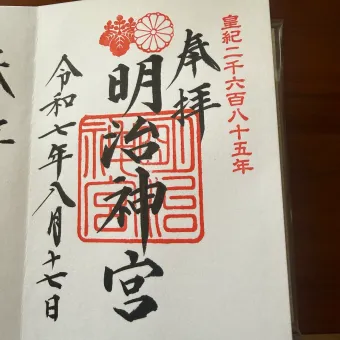 皇紀二千六百八十五年
奉拝
明治神宮
令和七年八月十七日